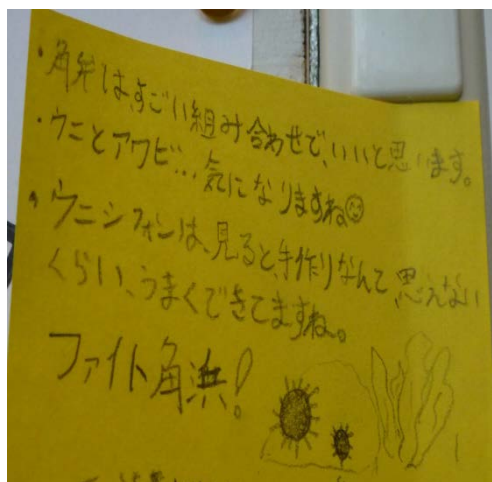 ・角弁は、すごい組み合わせで、いいと思います。
・ウニとアワビ…気になりますね☺
・ウニシフォンは、見ると、手作りなんて、思えない
くらい、うまくできてますね。
ファイト角浜!